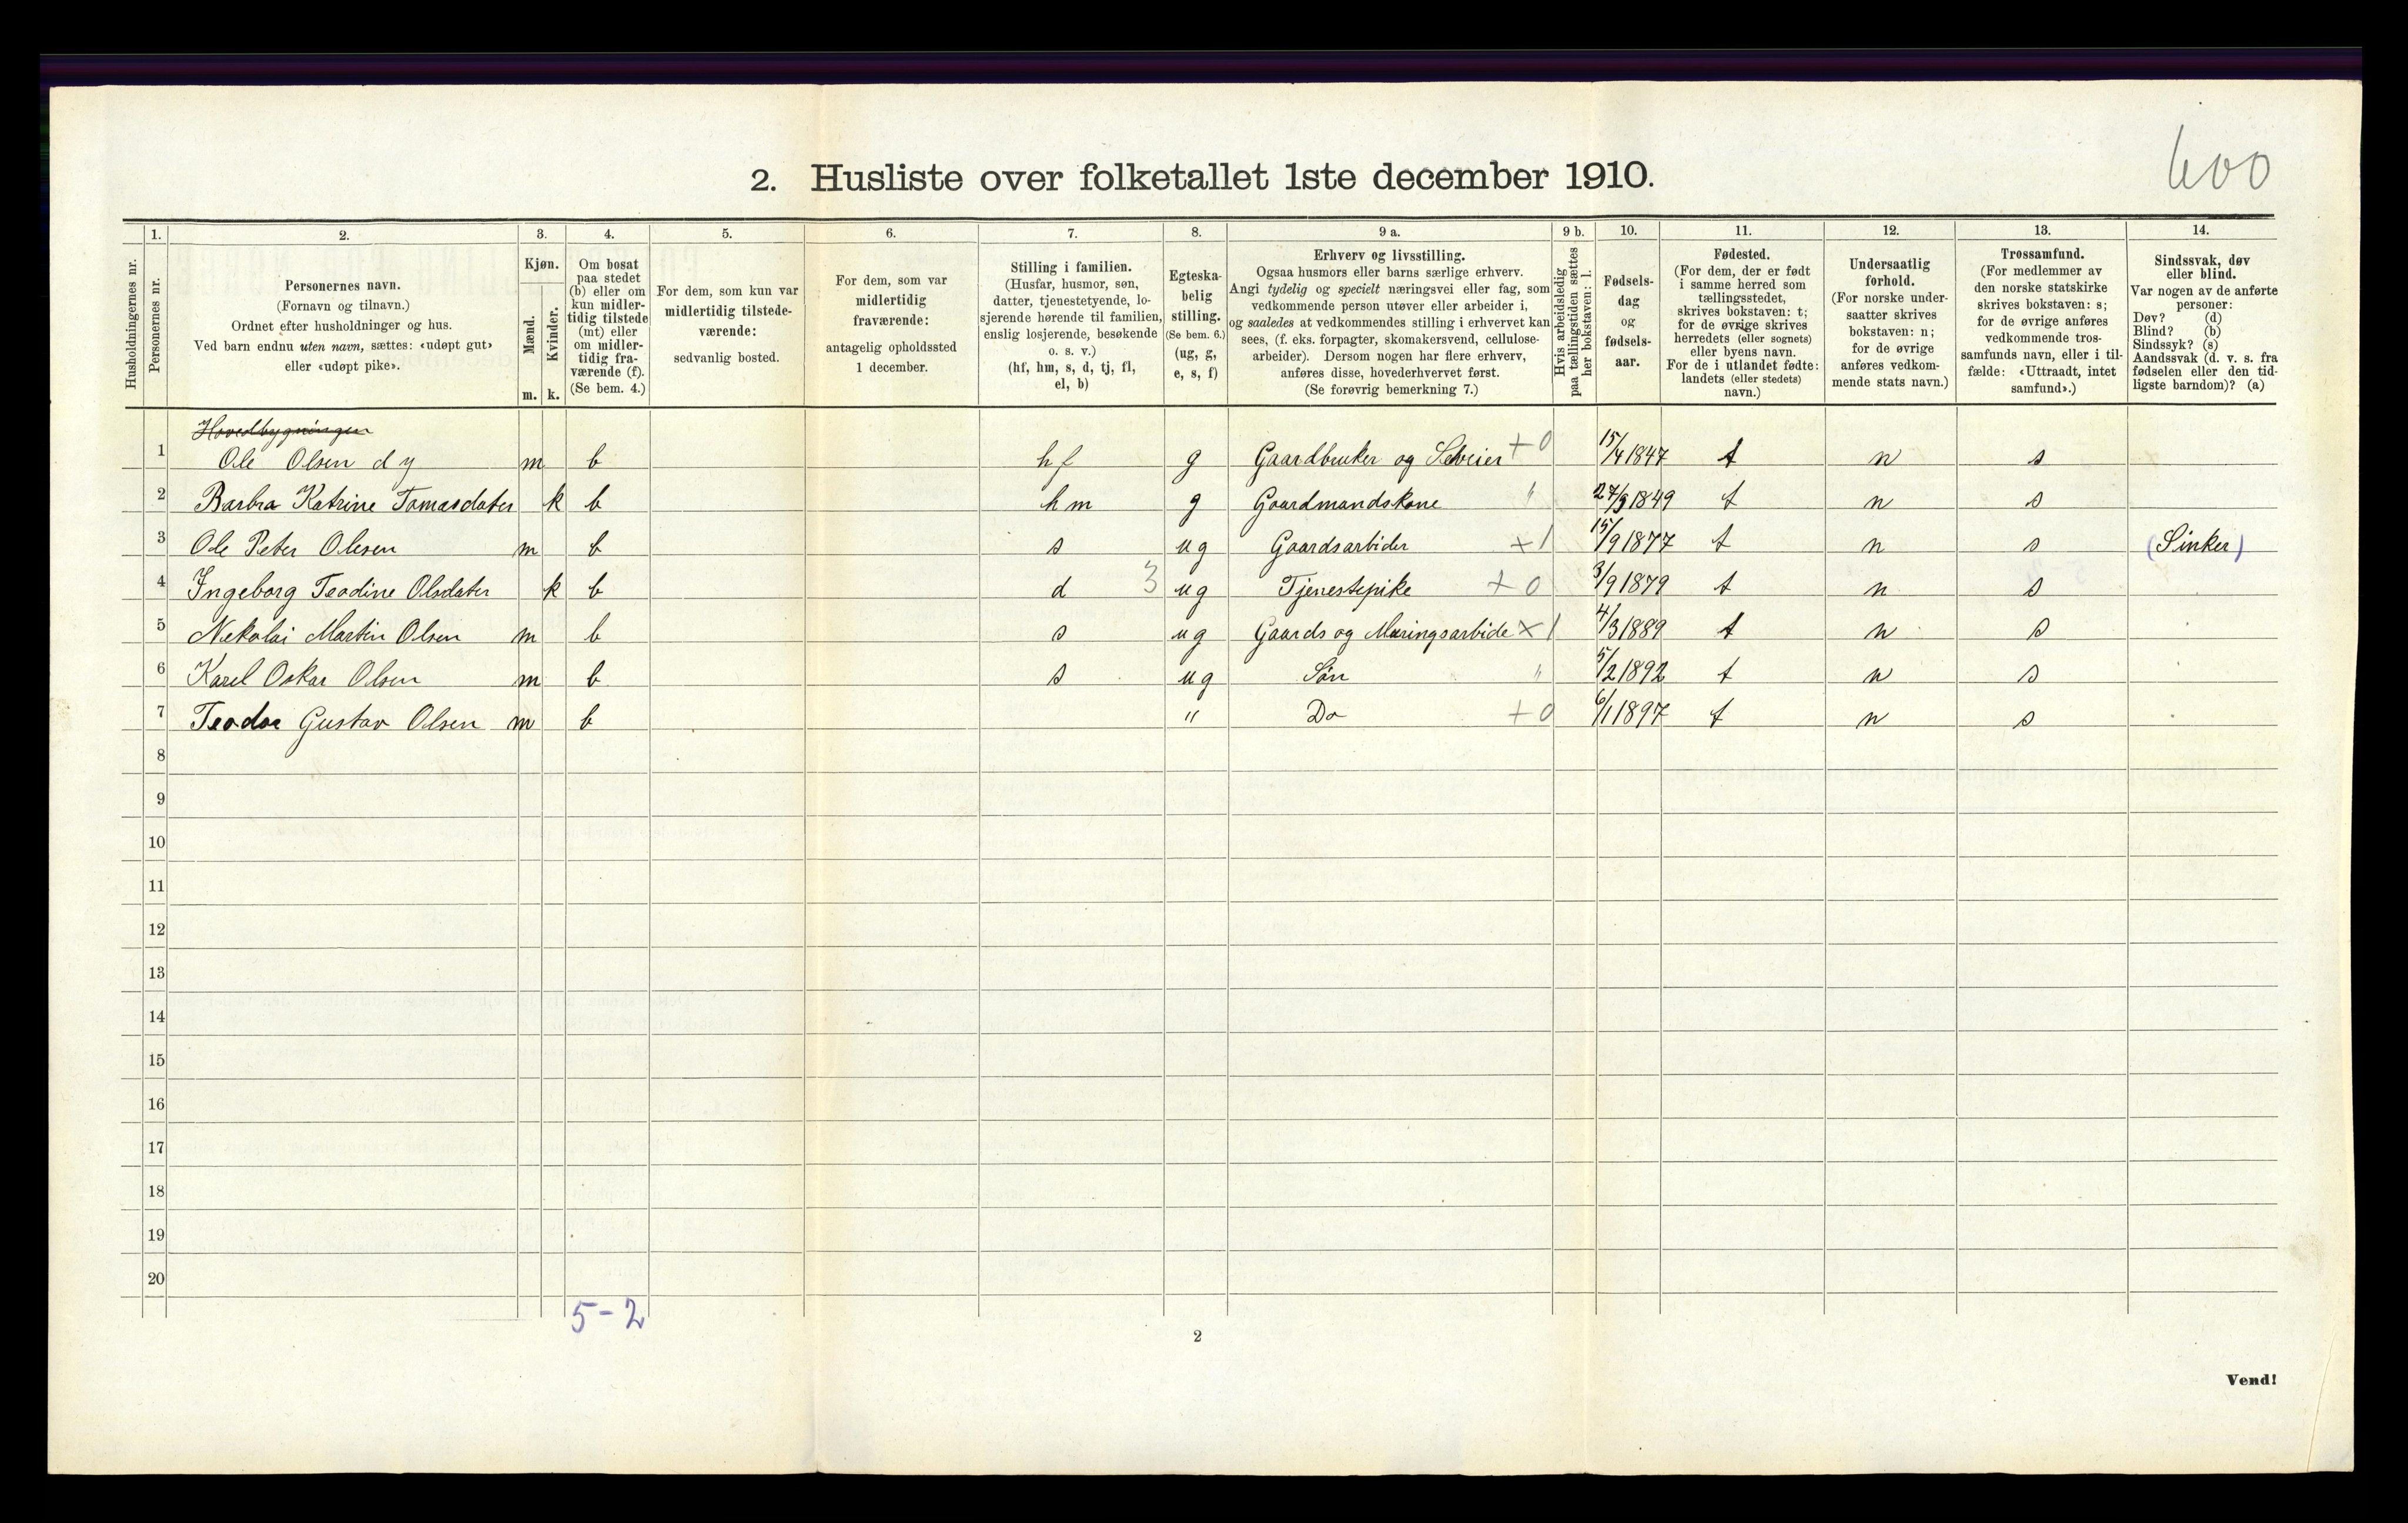 2. Husliste over folketallet 1ste december 1910.
600
1. 2. 3. 4. 5. 6. 7. 8. 9 a. 9 b. 10. 11. 12. 13. 14.
Husholdningernes nr.
Personernes nr.
Personernes navn.
(Fornavn og tilnavn.)
Ordnet efter husholdninger og hus.
Ved barn endnu uten navn, sættes: «udøpt gut»
eller «udøpt pike».
Kjøn.
Mænd.
Kvinder.
m. k.
Om bosat
paa stedet
(b) eller om
kun midler-
tidig tilstede
(mt) eller
om midler-
tidig fra-
værende (f).
(Se bem. 4.)
For dem, som kun var
midlertidig tilstede-
værende:
sedvanlig bosted.
For dem, som var
midlertidig
fraværende:
antagelig opholdssted
1 december.
Stilling i familien.
(Husfar, husmor, søn,
datter, tjenestetyende, lo-
sjerende hørende til familien,
enslig losjerende, besøkende
o. s. v.)
(hf, hm, s, d, tj, fl,
el, b)
Egteska-
belig
stilling.
(Se bem. 6.)
(ug, g,
e, s, f)
Erhverv og livsstilling.
Ogsaa husmors eller barns særlige erhverv.
Angi tydelig og specielt næringsvei eller fag, som
vedkommende person utøver eller arbeider i,
og saaledes at vedkommendes stilling i erhvervet kan
sees, (f. eks. forpagter, skomakersvend, cellulose-
arbeider). Dersom nogen har flere erhverv,
anføres disse, hovederhvervet først.
(Se forøvrig bemerkning 7.)
Hvis arbeidsledig
paa tællingstiden sættes
her bokstaven: l.
Fødsels-
dag
og
fødsels-
aar.
Fødested.
(For dem, der er født
i samme herred som
tællingsstedet,
skrives bokstaven: t;
for de øvrige skrives
herredets (eller sognets)
eller byens navn.
For de i utlandet fødte:
landets (eller stedets)
navn.)
Undersaatlig
forhold.
(For norske under-
saatter skrives
bokstaven: n;
for de øvrige
anføres vedkom-
mende stats navn.)
Trossamfund.
(For medlemmer av
den norske statskirke
skrives bokstaven: s;
for de øvrige anføres
vedkommende tros-
samfunds navn, eller i til-
fælde: «Uttraadt, intet
samfund».)
Sindssvak, døv
eller blind.
Var nogen av de anførte
personer:
Døv? (d)
Blind? (b)
Sindssyk? (s)
Aandssvak (d. v. s. fra
fødselen eller den tid-
ligste barndom)? (a)
Hovedbygningen
1 Ole Olsen d y m b hf g Gaardbruker og Selveier +0 15/4 1847 t n s
2 Barbra Katrine Tomasdater k b hm g Gaardmandskone " 27/3 1849 t n s
3 Ole Peter Olesen m b s ug Gaardsarbider +1 15/9 1877 t n s (Sinker)
4 Ingeborg Teodine Olsdater k b d 3 ug Tjenestepike +0 3/9 1879 t n s
5 Nekolai Martin Olsen m b s ug Gaards og Muringsarbide ×1 4/3 1889 t n s
6 Karel Oskar Olsen m b s ug Søn " 5/2 1892 t n s
7 Teodor Gustav Olsen m b " Do +0 6/1 1897 t n s
8
9
10
11
12
13
14
15
16
17
18
19
20
5-2
2
Vend!